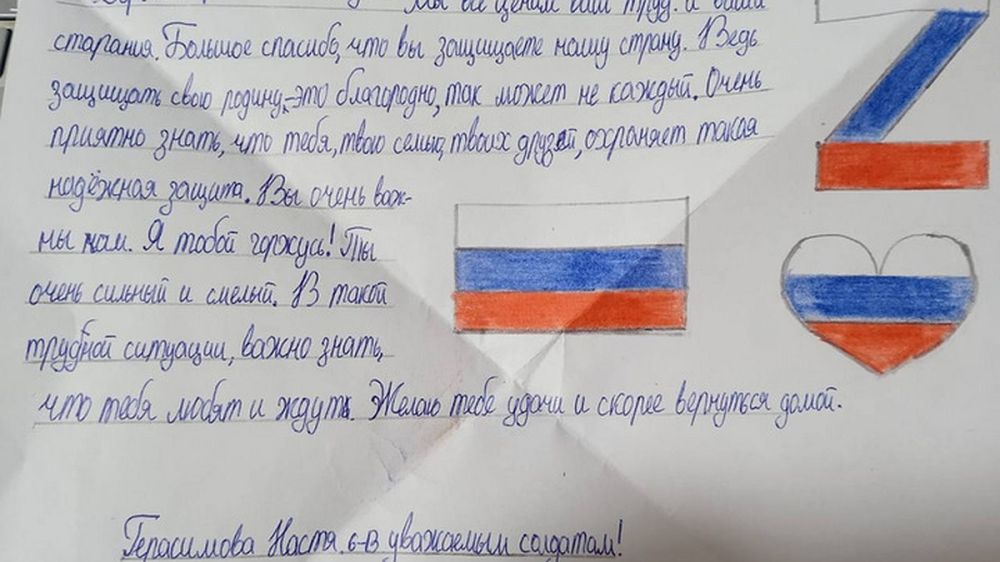 Мы все ценим ваш труд. и ваши
старания. Большое спасибо, что вы защищаете нашу страну. Ведь
защищать свою родину, - это благородно, так может не каждый. Очень
приятно знать, что тебя, твою семью, твоих друзей, охраняет такая
надёжная защита. Вы очень важ-
ны нам. Я тобой горжусь! Ты
очень сильный и смелый. В такой
трудной ситуации, важно знать,
что тебя любят и ждут. Желаю тебе удачи и скорее вернуться домой.
Герасимова Настя. 6-В уважаемым солдатам!